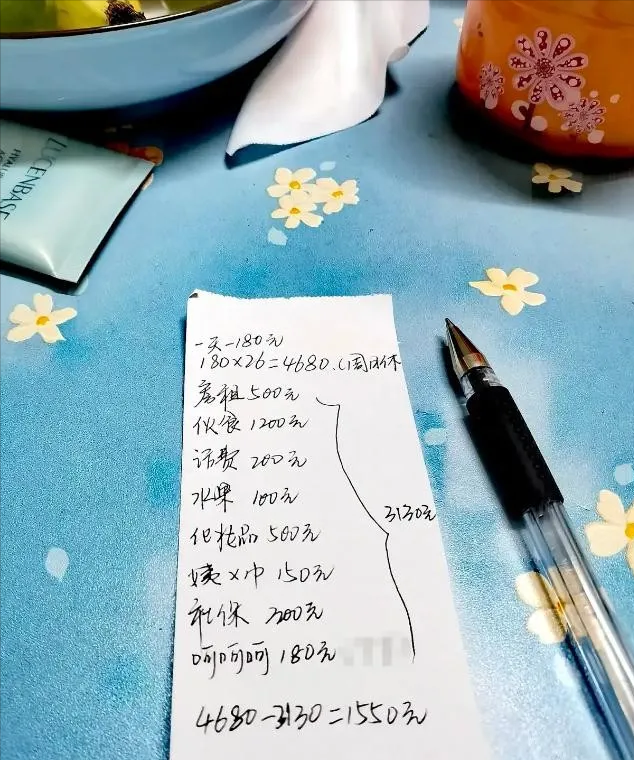 LUCENBASE
HYALU
AC
一天-180元
180×26=4680.(周日休
房租500元
伙食1200元
话费200元
水果100元
化妆品500元
姨×巾150元
社保300元
呵呵呵180元
3130元
4680-3130=1550元